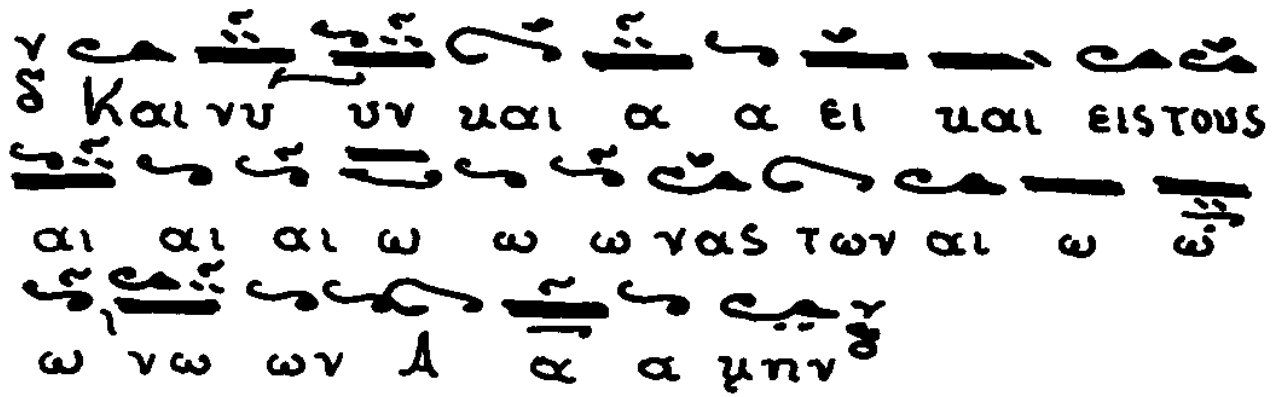 Και νυ υν και α α ει και εις τους
αι αι αι ω ω ω νας των αι ω ω
ω νω ων Α α α μην